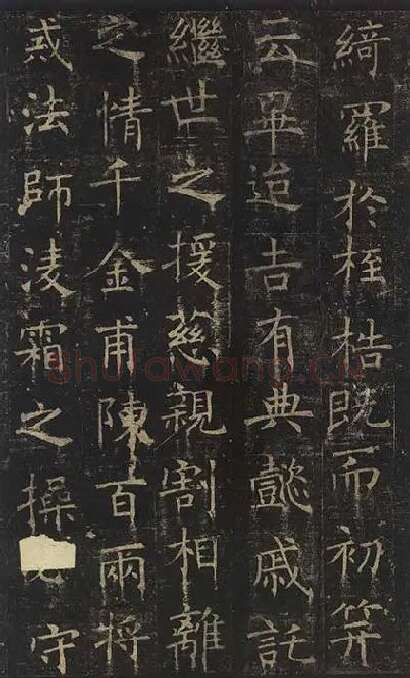 綺羅於桎梏既而初笄
云畢迨吉有典懿戚託
繼世之援慈親割相離
之情千金甫陳百兩將
戒法師淩霜之操守
shufawang.cn